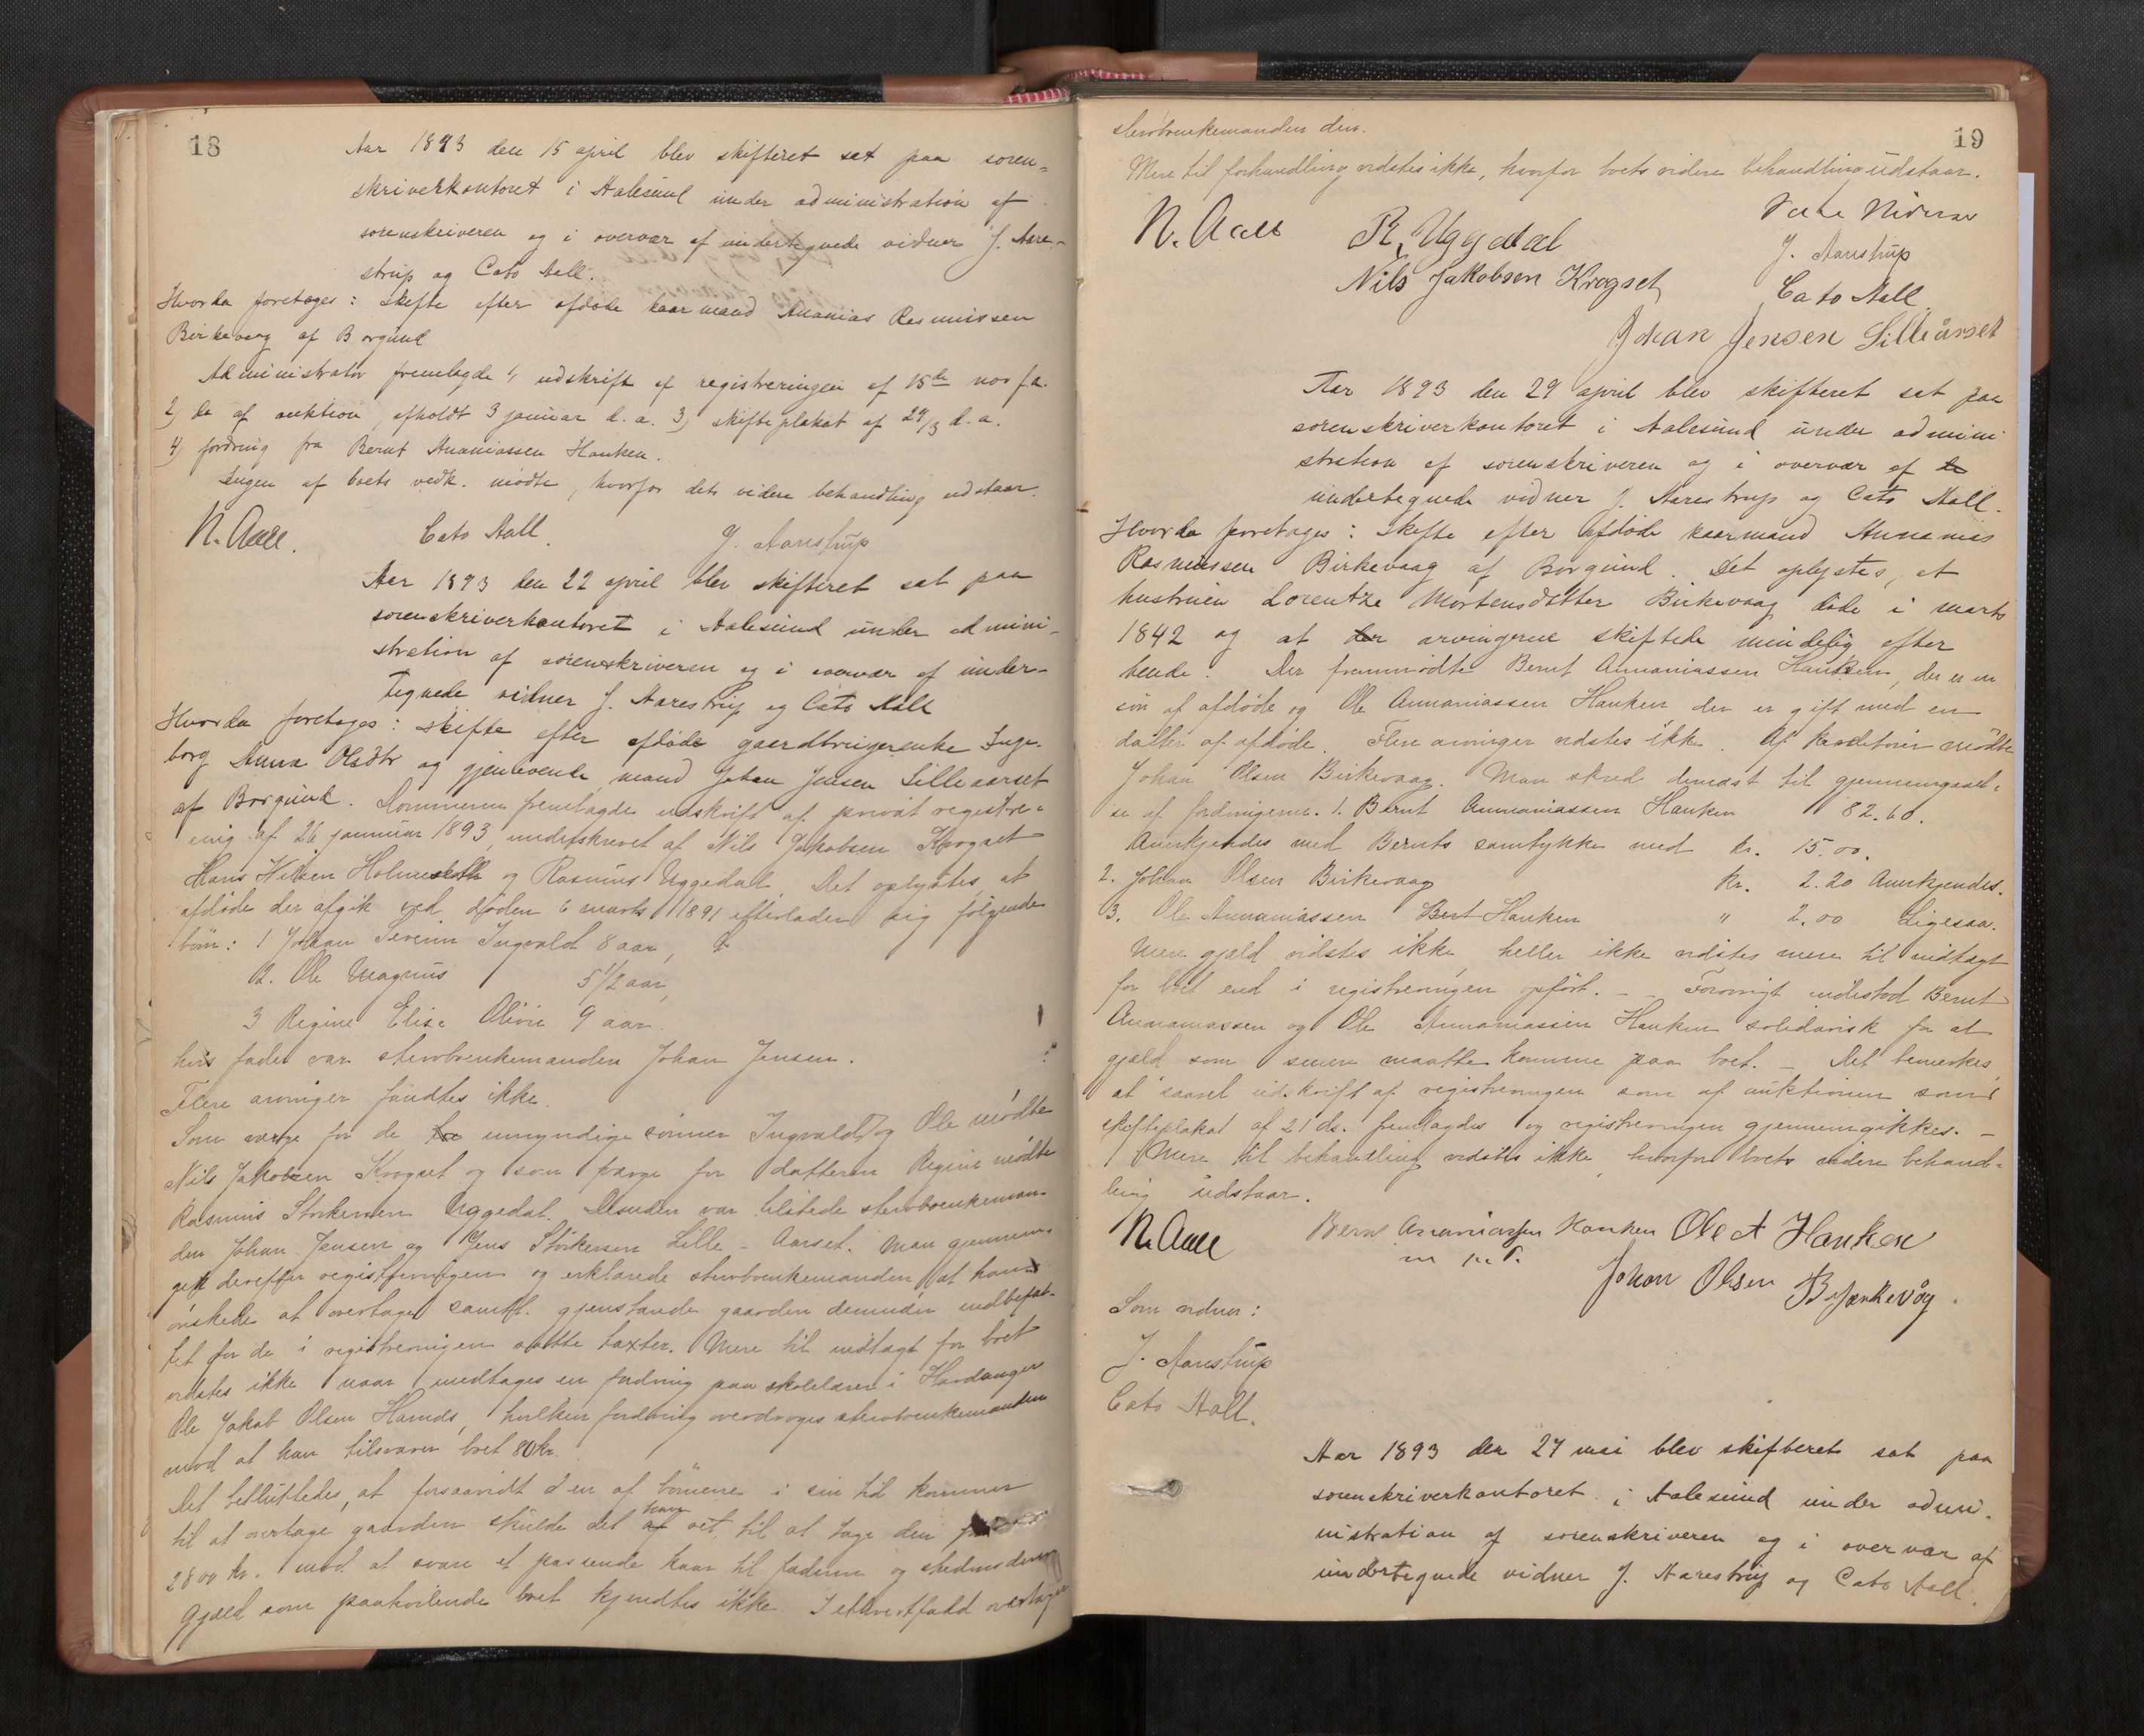 18
Aar 1893 den 15 april blev skifteret sat paa soren=
skriverkontoret i Aalesund under administration af
sorenskriveren og i overvær af undertegnede vidner J. Aare-
strup og Cato Aall.
Hvorda foretoges: Skifte efter afdøde kaarmand Ananias Rasmussen
Birkevaag af Borgund
Administrator fremlagde 1, udskrift af registreringen af 15de nov f.a.
2) do af auktion, afholdt 3 januar d.a. 3) skifteplakat af 29/3 d.a.
4) fordring fra Bernt Ananiassen Hanken.
Ingen af boets vedk. mødte, hvorfor dets videre behandling udstaar.
N. Aall. Cato Aall. J. Aarestrup
Aar 1893 den 22 april blev skifteret sat paa
sorenskriverkontoret i Aalesund under admini-
stration af sorenskriveren og i overvær af under-
tegnede vidner J. Aarestrup og Cato Aall
Hvorda foretoges: Skifte efter afdøde gaardbrugerenke Inge-
borg Anna Olsdtr og gjenlevende mand Johan Jensen Lilleaarset
af Borgund. Kommerne fremlagde udskrift af privat registre=
ring af 26 januar 1893, underskrevet af Nils Jakobsen Krogset
Hans Nilsen og Rasmus Uggedal. Det oplystes, at
afdøde der afgik ved døden 6 marts 1891 efterlader sig følgende
børn: 1 Johan Severin Ingvald 8 aar,
2. Ole Magnus 5 1/2 aar,
3 Regine Elise Olivie 9 aar.
hvis fader var stervboenkemanden Johan Jensen.
Flere arvinger fandtes ikke.
Som værge for de umyndige sønner Ingvald og Ole mødte
Nils Jakobsen Krogset og som værge for datteren Regine mødte
Rasmus Storkersen Uggedal. Desuden var tilstede stervboenkeman-
den Johan Jensen og Jens Storkersen Lille-Aarset. Man gjennem-
gik derefter registreringen og erklærede stervboenkemanden, at han
ønskede at overtage samtl. gjenstande gaarden derunder indbefat-
tet for de i registreringen satte taxter. Mere til indtægt for boet
vidstes ikke naar undtages en fordring paa skolelærer i Hardanger
Ole Jakob Olsen, hvilken fordring overdroges stervboenkemanden
mod at han tilsvarer boet 80 kr.
Det besluttedes, at forsaavidt den af børnene i sin tid kommer
til at overtage gaarden skulde det have ret til at tage den for
2800 kr. mod at svare et passende kaar til faderen og
Gjæld som paahvilende boet kjendtes ikke. I ethvert fald overtager
19
stervboenkemanden den.
Mere til forhandling vidstes ikke, hvorfor boets videre behandling udstaar.
N. Aall R. Uggedal Som Vidner
Nils Jakobsen Krogset J. Aarestrup
Cato Aall
Johan Jensen Lilleårset
Aar 1893 den 29 april blev skifteret sat paa
sorenskriverkontoret i Aalesund under admini
stration af sorenskriveren og i overvær af
undertegnede vidner J. Aarestrup og Cato Aall.
Hvorda foretoges: Skifte efter afdøde kaarmand Annanias
Rasmussen Birkevaag af Borgund. Det oplystes, at
hustruen Lorentze Mortensdatter Birkevaag døde i marts
1842 og at arvingerne skiftede mindelig efter
hende. Der fremmødte Bernt Annaniassen Hanken, der er en
søn af afdøde og Ole Annaniassen Hanken der er gift med en
datter af afdøde. Flere arvinger vidstes ikke. Af kreditorer mødte
Johan Olsen Birkevaag. Man skred dernæst til gjennemgaael=
se af fordringerne. 1. Bernt Annaniassen Hanken 82.60.
Anerkjendes med Bernts samtykke med kr. 15.00.
2. Johan Olsen Birkevaag kr. 2.20 Anerkjendes.
3. Ole Annaniassen Hanken " 2.00 Ligesaa.
Mere gjæld vidstes ikke, heller ikke vidstes mere til indtægt
for boet end i registreringen opført. - Forøvrigt indestod Bernt
Annaniassen og Ole Annaniassen Hanken solidarisk for al
gjæld som senere maatte komme paa boet. - Det bemerkes,
at saavel udskrift af registreringen som af auktionen samt
skifteplakat af 21 ds. fremlagdes og registreringen gjennemgikkes. -
Mere til behandling vidstes ikke, hvorfor boets videre behand=
ling udstaar.
N. Aall Bernt Ananiassen Hanken Ole A Hanken
m. p. P.
Johan Olsen Bjørkevåg.
Som vidner:
J. Aarestrup
Cato Aall.
Aar 1893 den 27 mai blev skifteret sat paa
sorenskriverkontoret i Aalesund under admi-
nistration af sorenskriveren og i overvær af
undertegnede vidner J. Aarestrup og Cato Aall.